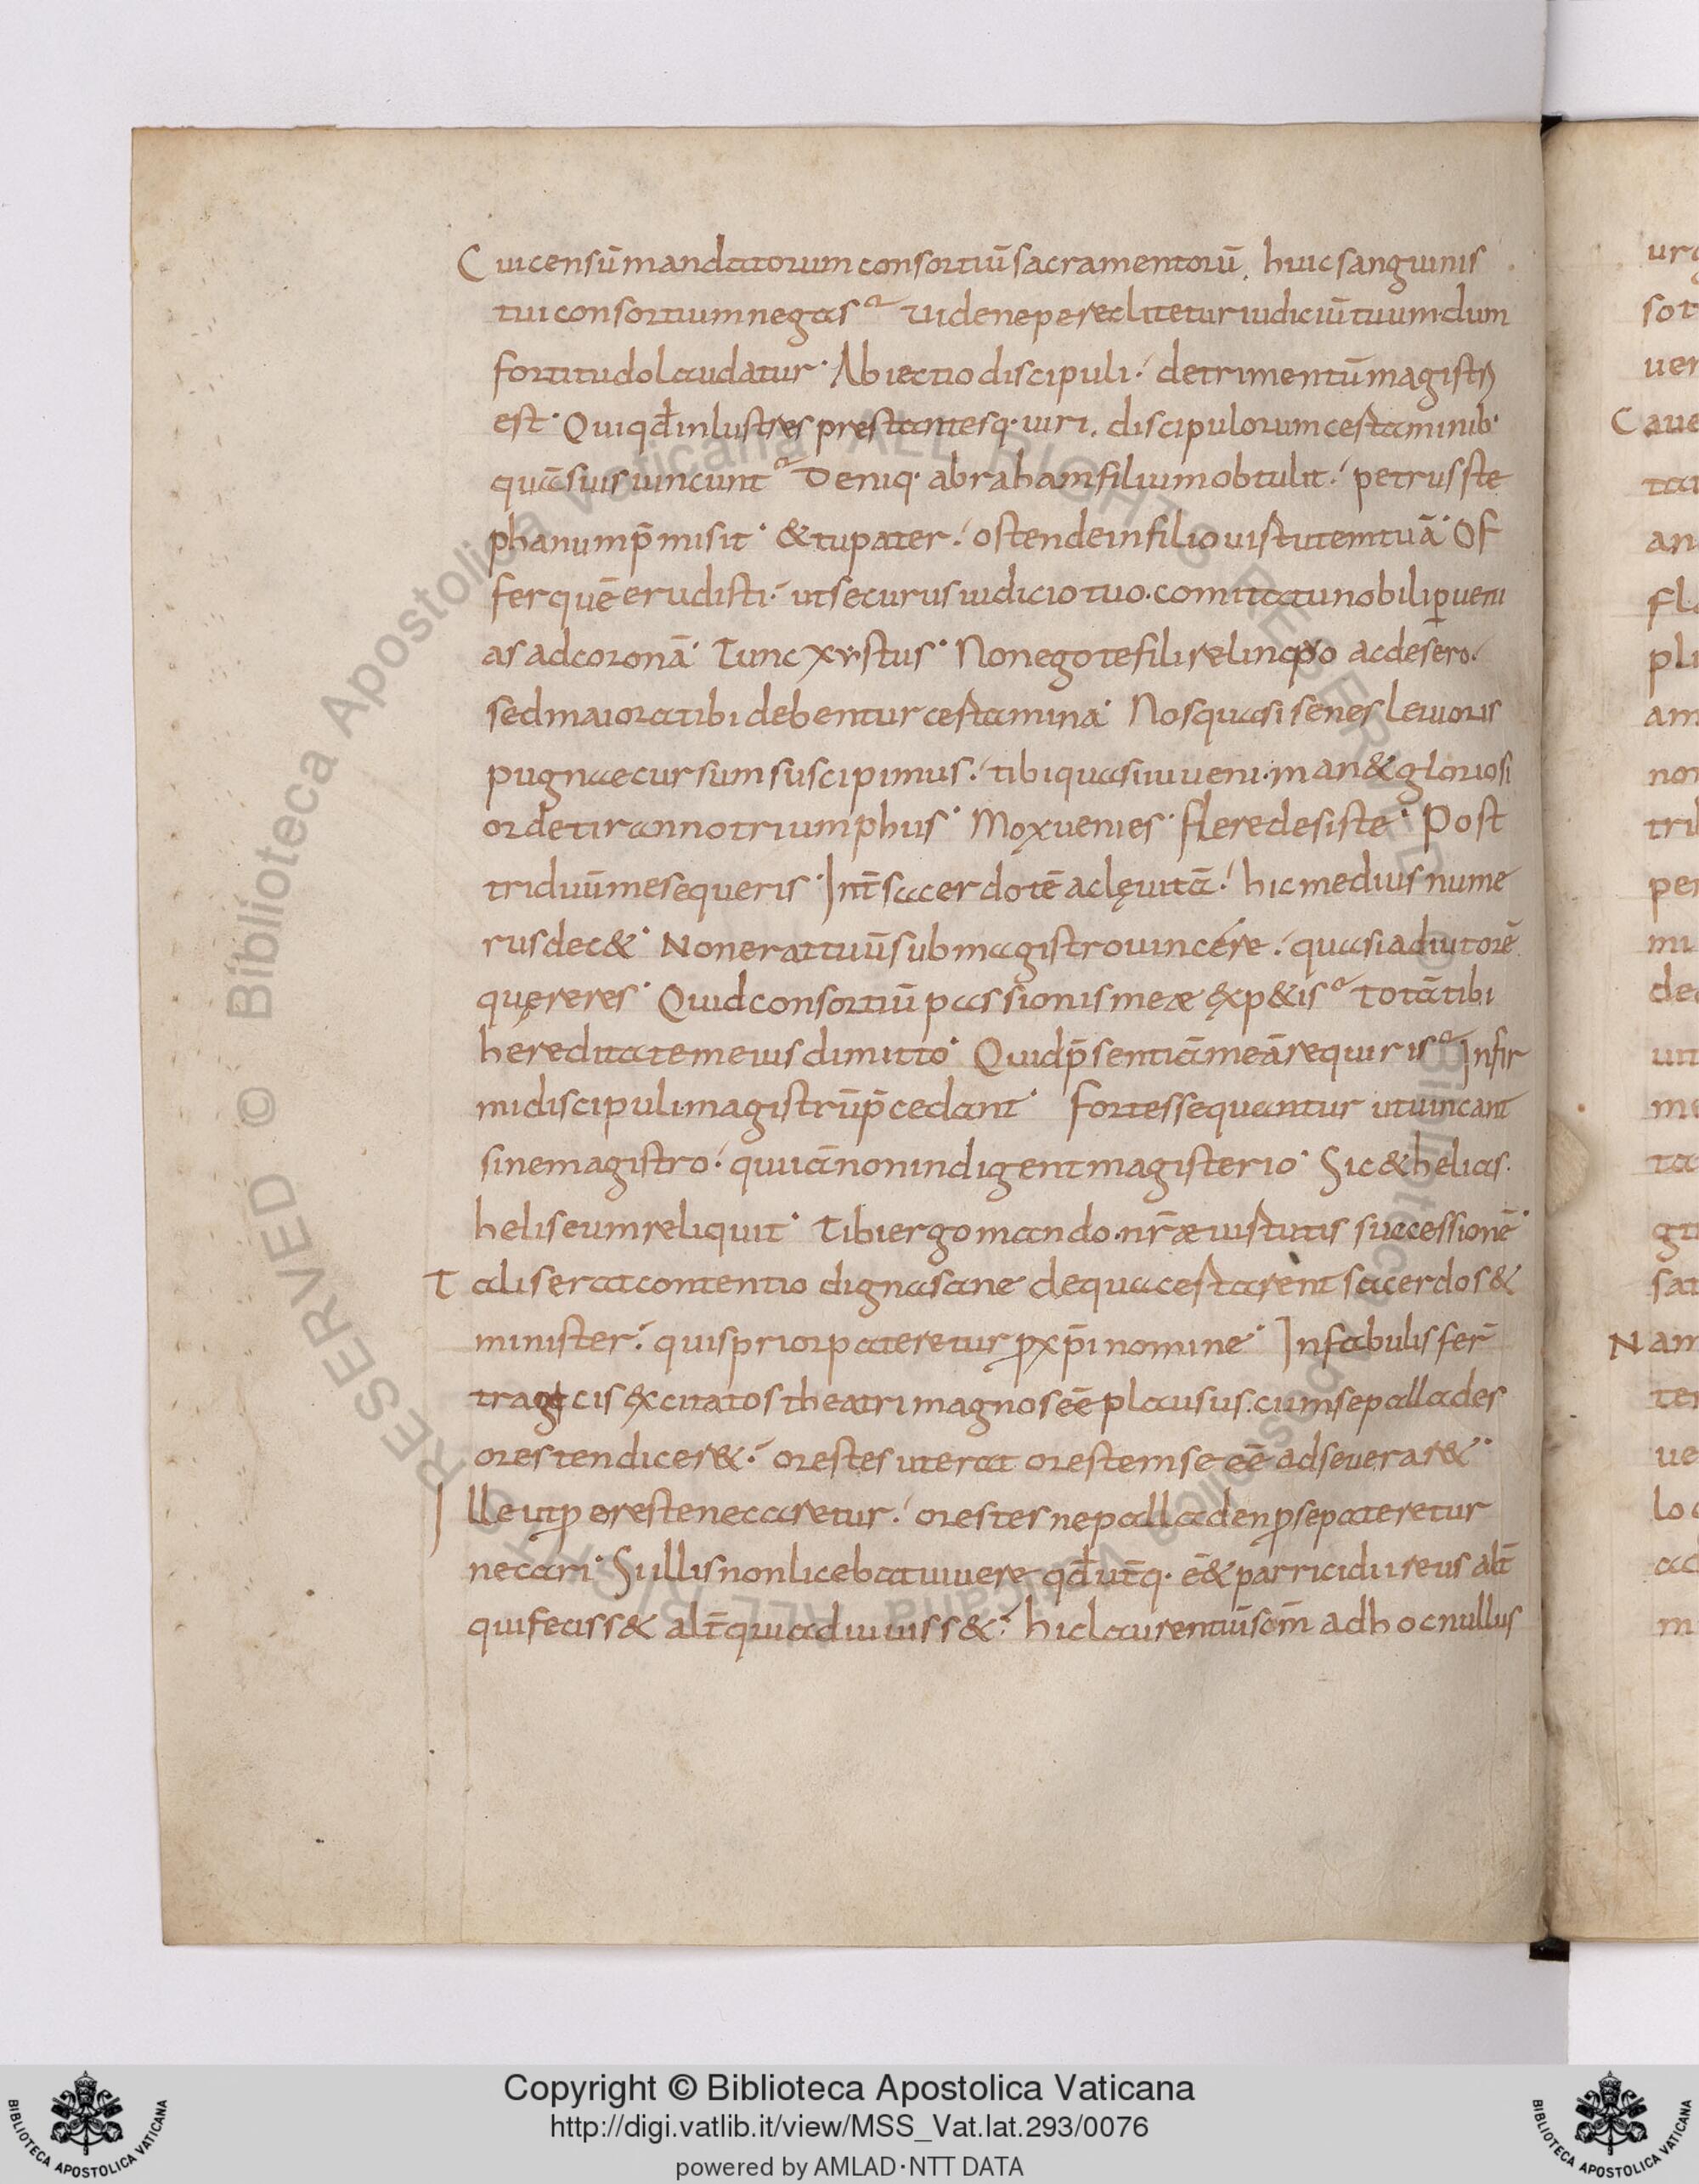 Cui censū mandatorum consortiū sacramentorū, huic sanguinis
tui consortium negas? Vide ne pereclitetur iudiciū tuum dum
fortitudo laudatur· Abiectio discipuli·' detrimentū magistri
est· Qui qđ inlustres prestantesq· uiri, discipulorum certaminib·
quā suis uincunt? Deniq· abraham filium obtulit·' petrus ste
phanum p̄misit· & tu pater·' ostende in filio uirtutem tuā· Of
fer quē erudisti·' ut securus iudicio tuo· comitatu nobili ꝑueni
as ad coronā· Tunc xystus· Non ego te fili relinquo ac desero·'
sed maiora tibi debentur certamina· Nos quasi senes leuioris
pugnae cursum suscipimus·' tibi quasi iuueni· man& gloriosi
or de tiranno triumphus· Mox uenies· flere desiste· Post
triduū me sequeris· Int̄ sacerdotē ac lęuitā·' hic medius nume
rus dec&· Non erat tuū sub magistro uincere·' quasi adiutorē
quęreres· Quid consortiū passionis meæ exp&is? Totā tibi
hereditatem eius dimitto· Quid p̄sentiā meā requiris? Infir
mi discipuli magistrū p̄cedant· fortes sequantur ut uincant
sine magistro·' qui iā non indigent magisterio· Sic & helias·
heliseum reliquit· Tibi ergo mando· nr̄æ uirtutis successionē·
Talis erat contentio digna sane de qua certarent sacerdos &
minister·' quis prior pateretur ꝓ xp̄i nomine· In fabulis fer̄
tragicis excitatos theatri magnos eē plausus· cum se pallades
oresten dicer&·' orestes ut erat orestem se eē adseuerar&·
Ille ut ꝓ oreste necaretur·' orestes ne palladen ꝓ se pateretur
necari· Si illis non licebat uiuere qđ ut̄q· ēt parricidii reus alt̄
qui feciss& alt̄ quia diuuiss&·' hic laurentiū scm̄ ad hoc nullus
Copyright © Biblioteca Apostolica Vaticana
http://digi.vatlib.it/view/MSS_Vat.lat.293/0076
powered by AMLAD·NTT DATA